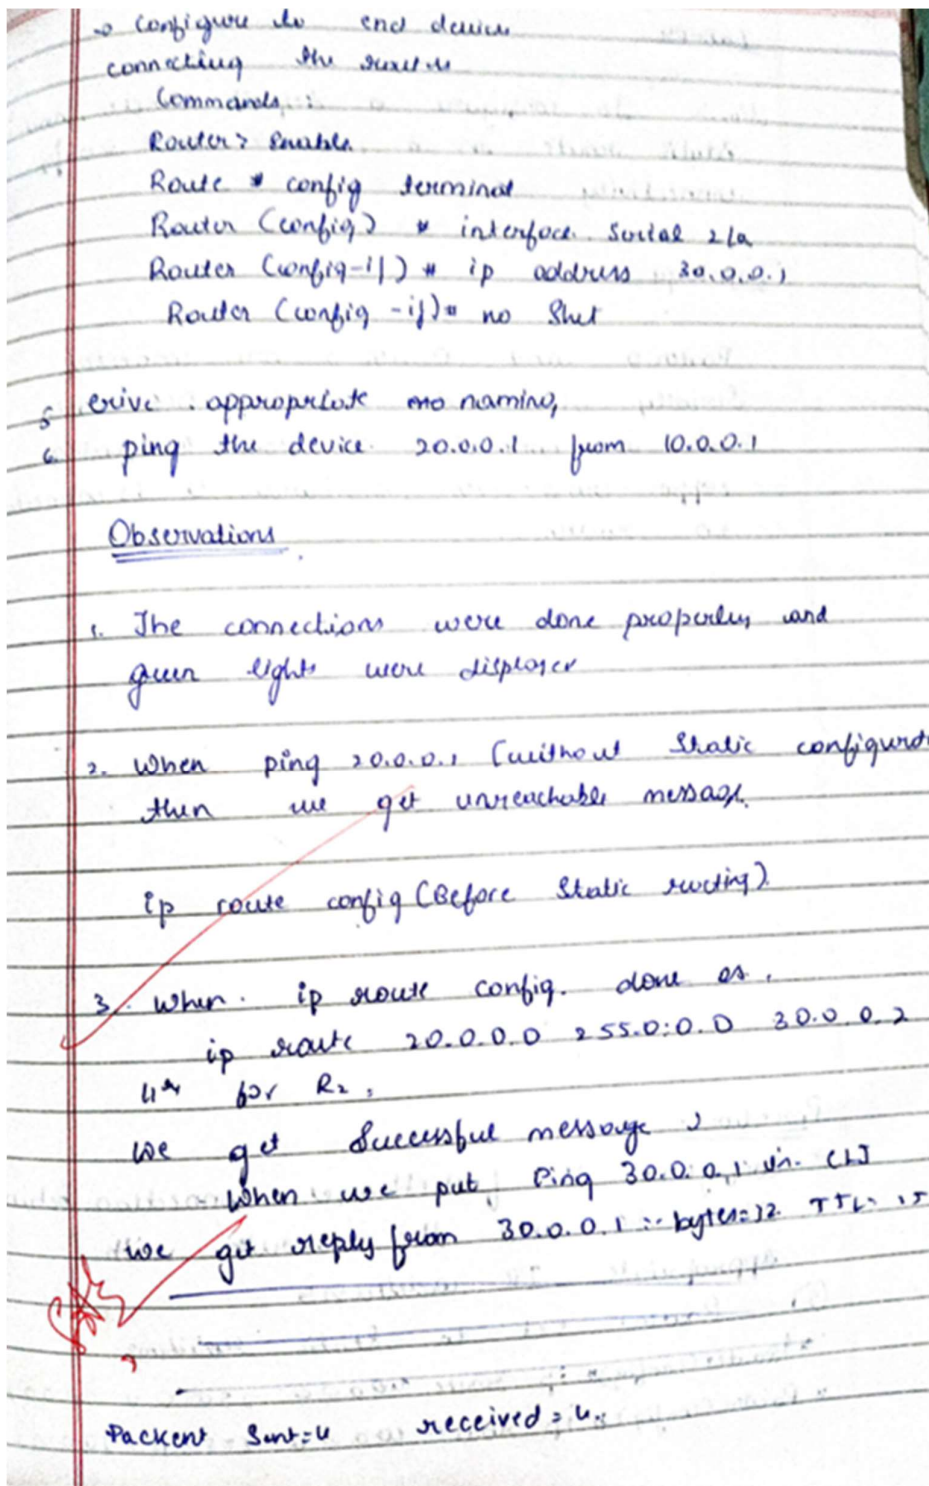 → Configure to end device
connecting the routers
Commands:
Router > Enable
Route # config terminal
Router (config) # interface Serial 2/0
Router (config-if) # ip address 30.0.0.1
Router (config -if) # no Shut
5 erive appropriate naming
6 ping the device 20.0.0.1 from 10.0.0.1
Observations
1. The connections were done properly and
green lights were displayed
2. When ping 20.0.0.1 (without Static configurat
then we get unreachable message.
ip route config (Before Static routing)
3. When ip route config. done as.
ip route 20.0.0.0 255.0.0.0 30.0.0.2
for R2,
We get Successful message
When we put Ping 30.0.0.1 in
we get reply from 30.0.0.1 :- bytes=32 TTL=
Packent Sent=4 received = 4.